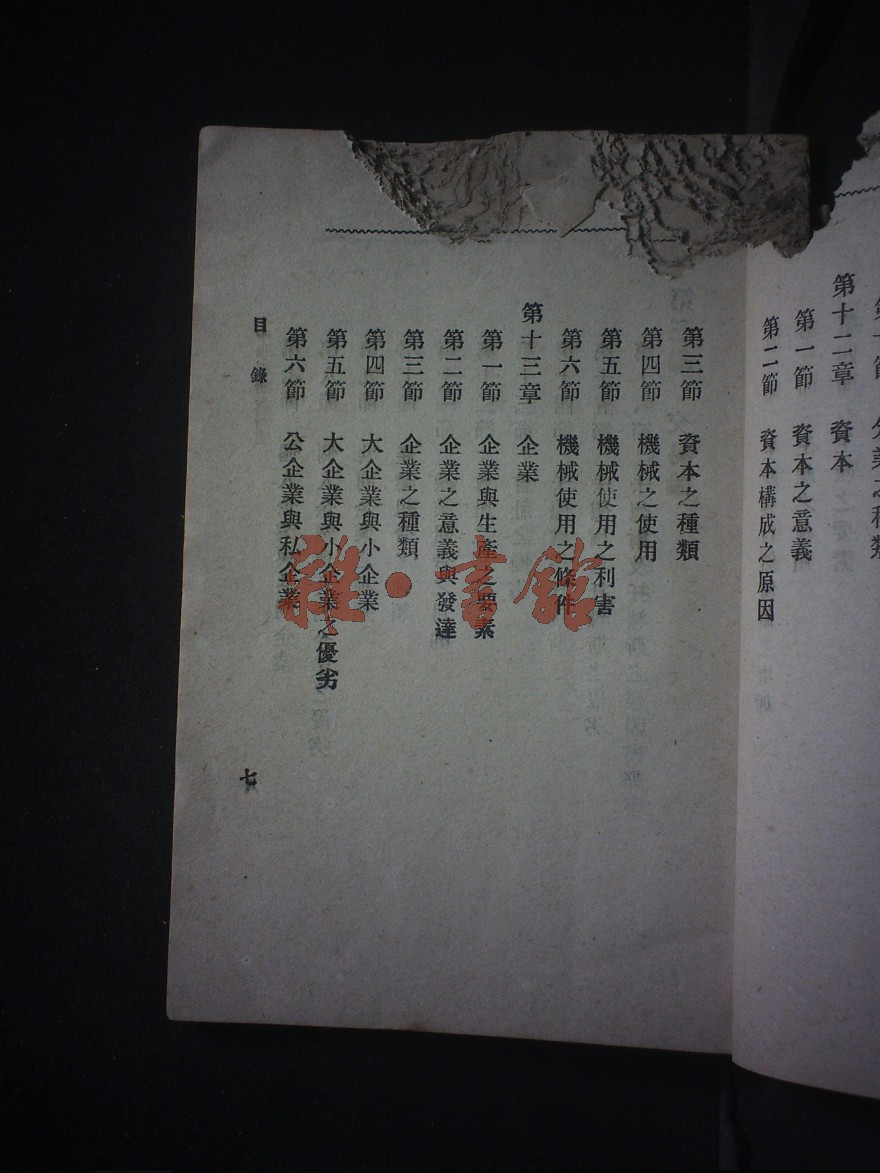 第十二章 資本
第一節 資本之意義
第二節 資本構成之原因
第三節 資本之種類
第四節 機械之使用
第五節 機械使用之利害
第六節 機械使用之條件
第十三章 企業
第一節 企業與生產之要素
第二節 企業之意義與發達
第三節 企業之種類
第四節 大企業與小企業
第五節 大企業與小企業之優劣
第六節 公企業與私企業
目錄
七
雜·書館